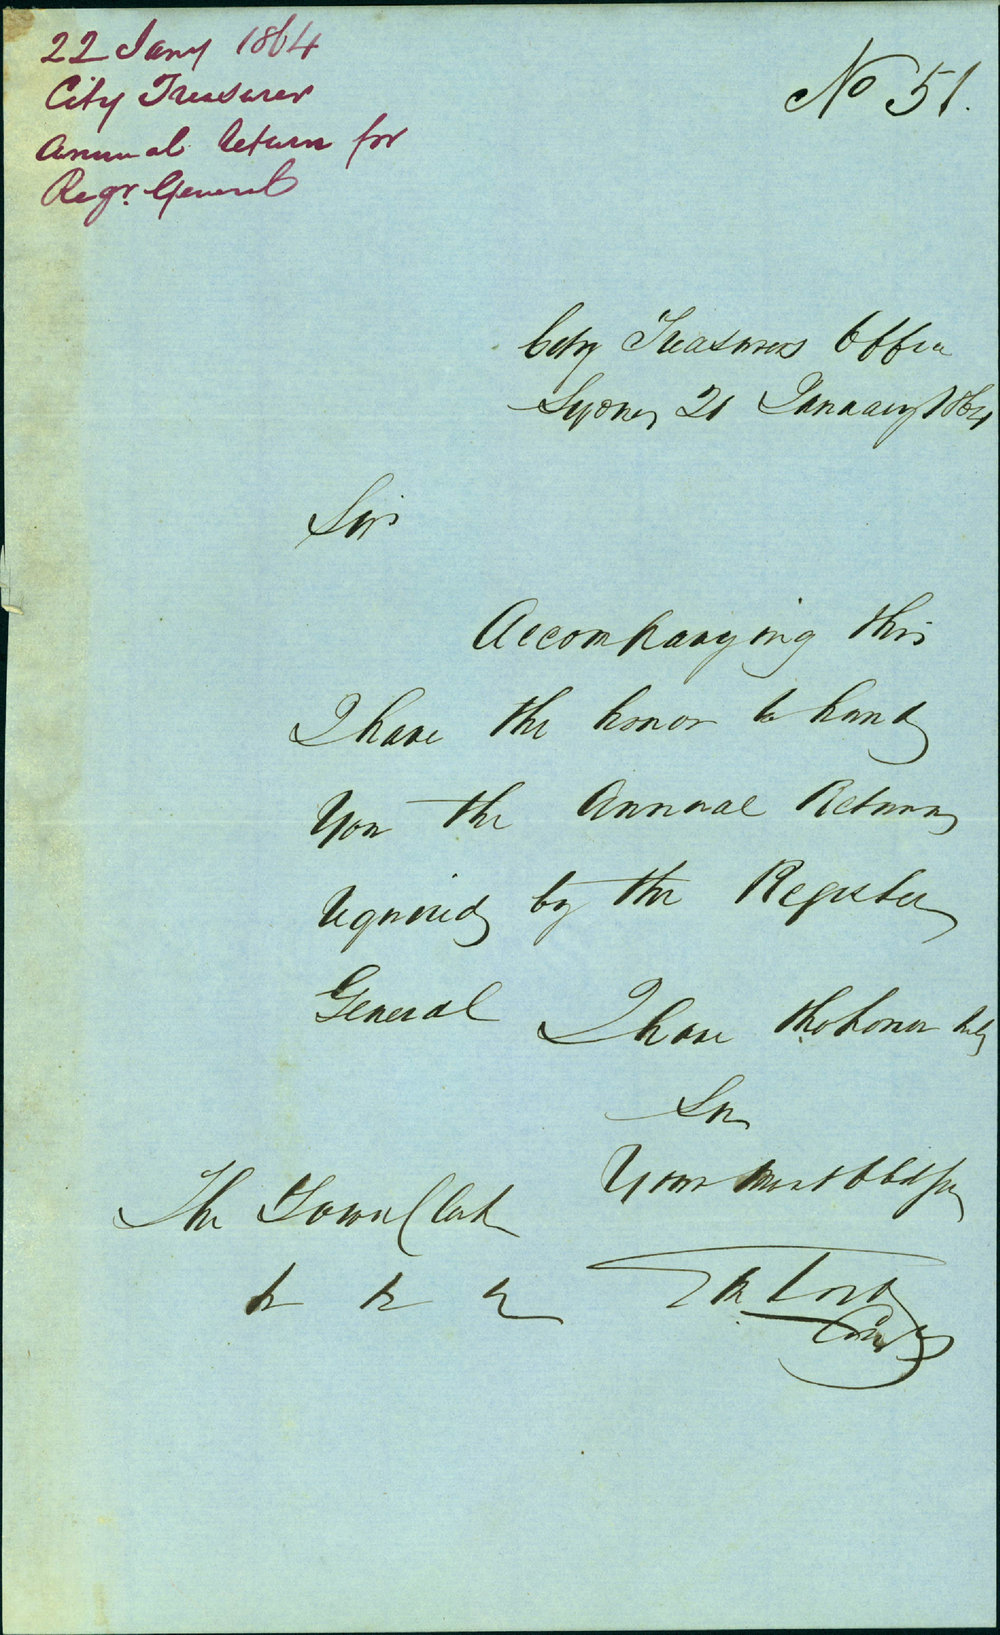 22 Jany 1864
City Treasurer
Annual Return for
Regr. General
No 51.
City Treasurers Office
Sydney 21 January 1864
Sir
Accompanying this
I have the honor to hand
You the Annual Returns
required by the Register
General
I have the honor to be
Sir
Your most Obdt Ser
The Town Clerk
&c &c &c